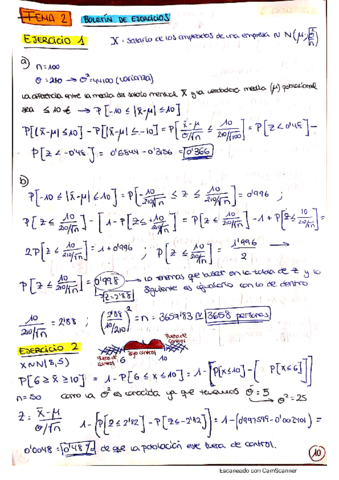 TEMA 2 BOLETÍN DE EJERCICIOS
EJERCICIO 1 X = Salario de los empleados de una empresa N N(μ,
a) n=100
σ=210 → σ²=44100 (varianza)
La diferencia entre la media del salario mensual X̄ y la verdadera media (μ) poblacional
sea ≤ 10 € → P[-10 ≤ |x̄-μ| ≤ 10]
P[|x̄-μ| ≤ 10] - P[|x̄-μ| ≤ -10] = P[x̄-μ/σ/√n ≤ 10/210/√100] = P[Z < 0'48] -
P[Z < -0'48] = 0'6844 - 0'3156 = 0'366
b)
P[-10 ≤ |x̄-μ| ≤ 10] = P[-10/210/√n ≤ Z ≤ 10/210/√n] = 0'996 ;
P[Z ≤ 10/210/√n] - [1 - P[Z ≤ +10/210/√n]] = P[Z ≤ 10/210/√n] - 1 + P[Z ≤ 10/210/√n] =
2P[Z ≤ 10/210/√n] = 1 + 0'996 ; P[Z ≤ 10/210/√n] = 1'996/2
P[Z ≤ 10/210/√n] = 0'998 → Lo tenemos que buscar en la tabla de Z y lo
Z=2'88 siguiente es igualarlo con lo de dentro
10/210/√n = 2'88 ; (2'88/10/210)² = n = 3657'83 ≅ 3658 personas
EJERCICIO 2 Fuera de control 6 Bajo control 10 Fuera de control
X N N(8,5)
P[6 ≥ x̄ ≥ 10] = 1 - P[6 ≤ x ≤ 10] = 1 - [P[x ≤ 10] - [P[x ≤ 6]]
n=50 como la σ es conocida ya que tenemos σ = 5 σ² = 25
Z = x̄-μ/σ/√n 1 - [P[Z ≤ 2'82] - P[Z ≤ -2'82]] = 1 - (0'997599 - 0'002401) =
0'0048 = 0'48% de que la población esté fuera de control.
10
Escaneado con CamScanner